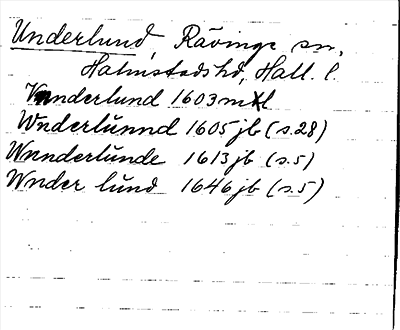 Underlund, Rävinge sn,
Halmstads hd, Hall. l.
Vnnderlund 1603 mtl
Wnderlŭnnd 1605 jb (s. 28)
Wnnderlŭnde 1613 jb (s. 5)
Wnder lŭnd 1646 jb (s. 5)